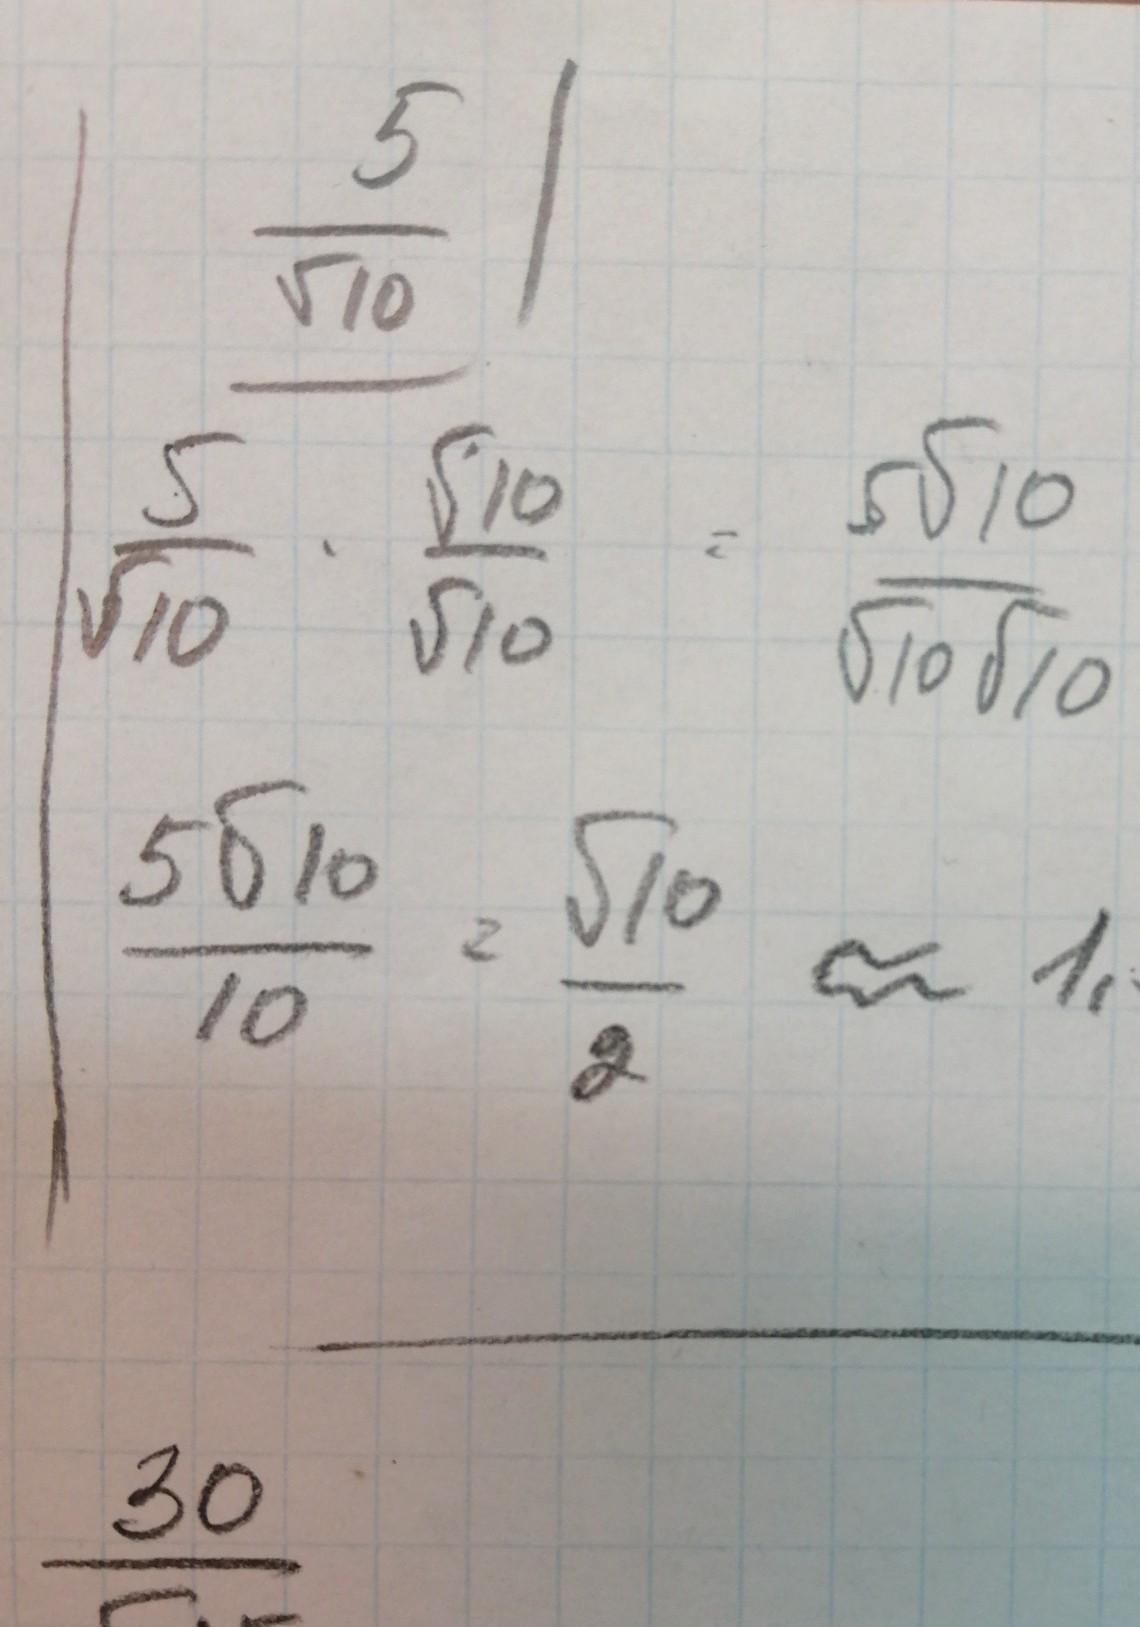 5/√10
5/√10 · √10/√10 = 5√10/√10√10
5√10/10 = √10/2 ≈ 1,
30